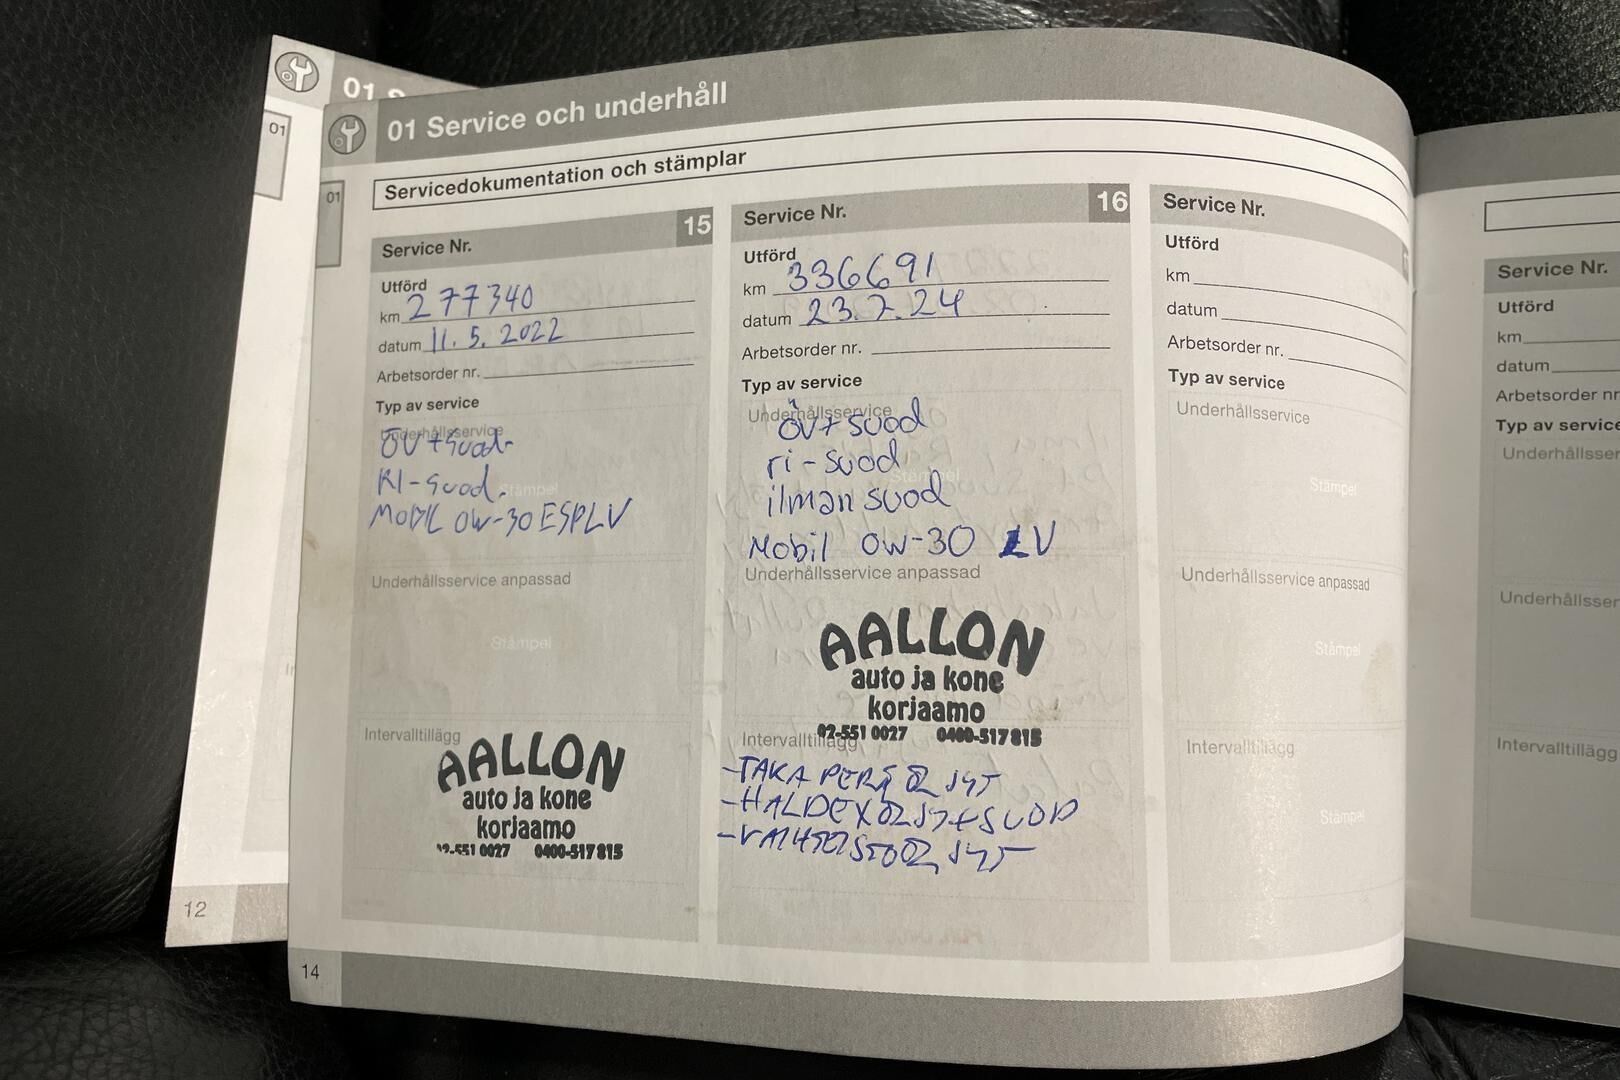 01
01 Service och underhåll
01
Servicedokumentation och stämplar
Service Nr. 15
Utförd
km 277340
datum 11.5.2022
Arbetsorder nr.
Typ av service
Underhållsservice
ÖV+Suod.
RI-Suod.
Stämpel
MOBIL 0W-30 ESP LV
Underhållsservice anpassad
Stämpel
Intervalltillägg
AALLON
auto ja kone
korjaamo
02-551 0027 0400-517815
Service Nr. 16
Utförd
km 336691
datum 23.7.24
Arbetsorder nr.
Typ av service
Underhållsservice
ÖV+suod
ri-suod
Stämpel
ilman suod
Mobil 0W-30 LV
Underhållsservice anpassad
AALLON
auto ja kone
korjaamo
02-551 0027 0400-517815
Intervalltillägg
-TAKA PERÄ ÖLJYT
-HALDEX ÖLJY+SUOD
-VAIHTEISTOÖLJYT
Service Nr.
Utförd
km
datum
Arbetsorder nr.
Typ av service
Underhållsservice
Stämpel
Underhållsservice anpassad
Stämpel
Intervalltillägg
Stämpel
Service Nr.
Utförd
km
datum
Arbetsorder nr
Typ av service
Underhållsser
Underhållsser
Intervalltillägg
12
14